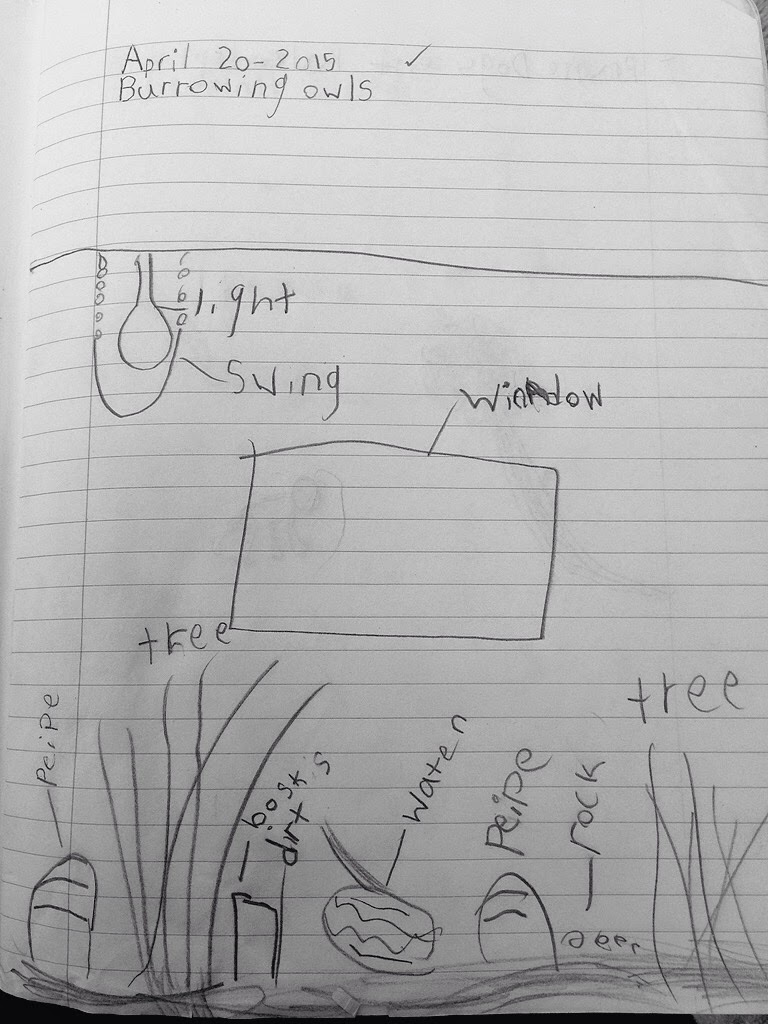 April 20-2015 ✓
Burrowing owls
light
Swing
window
tree
tree
Peipe
dirt
Water
Peipe
rock